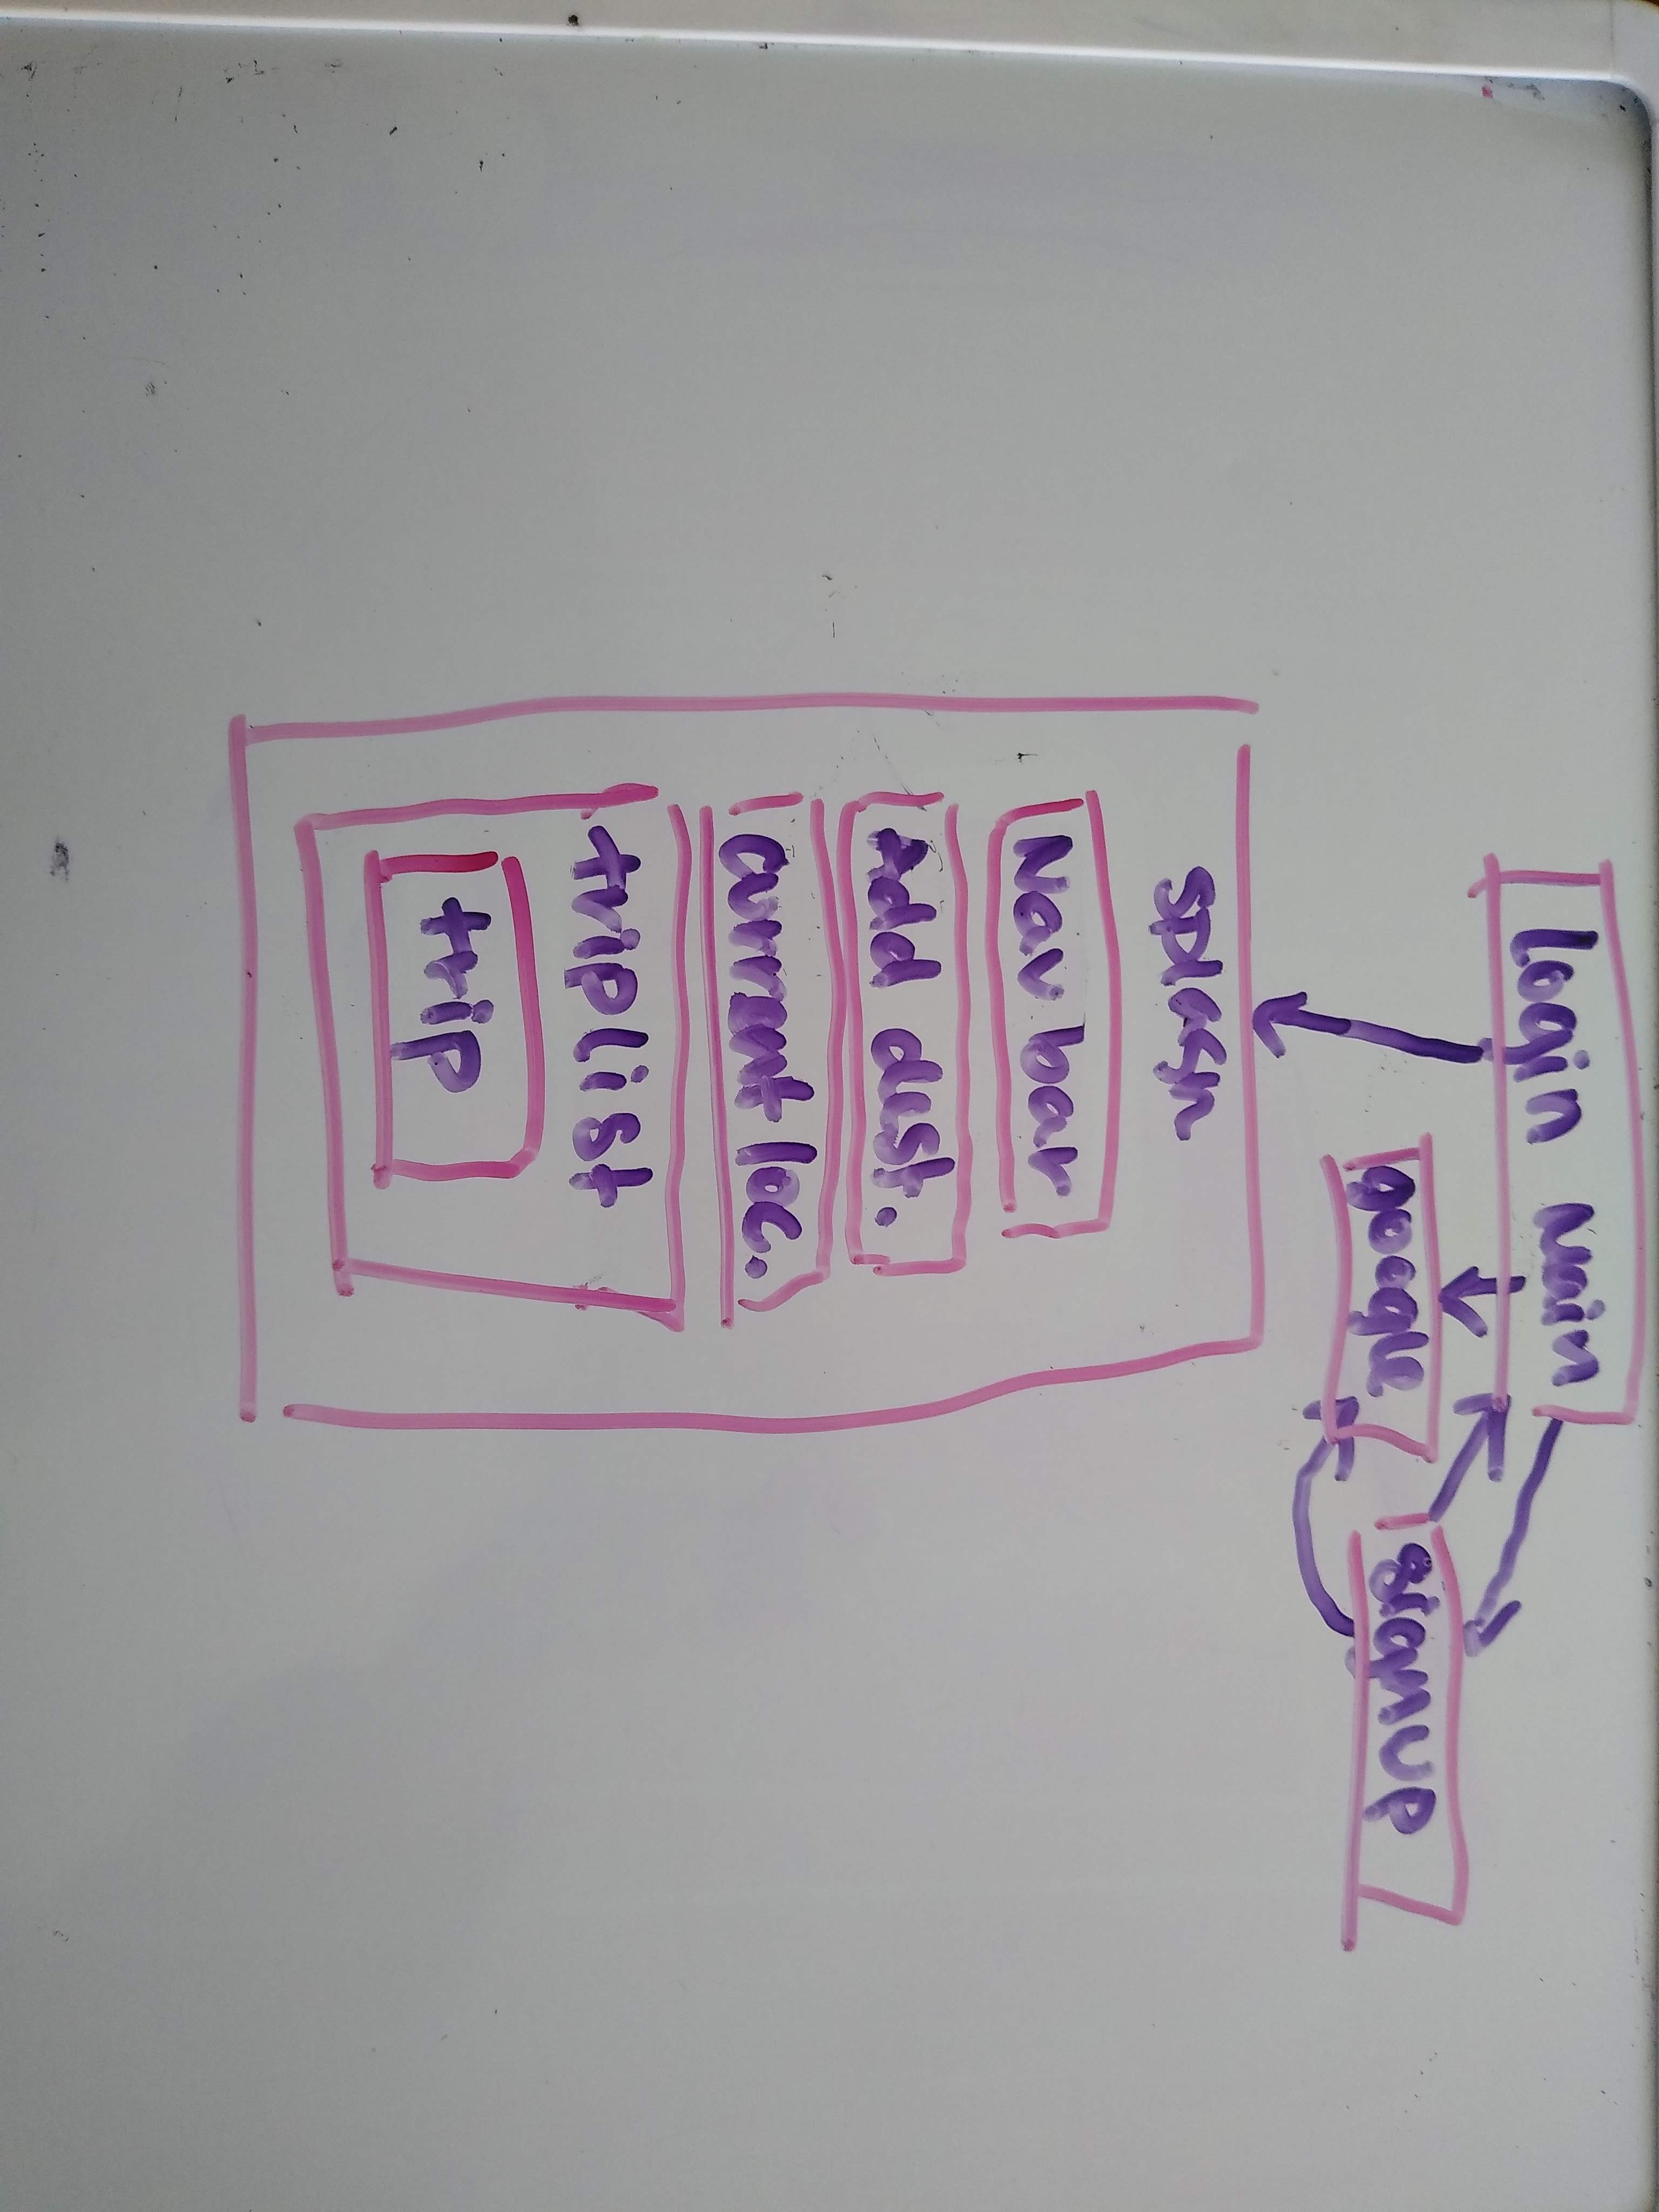 Login main
google
signup
splash
Nav bar
Add dest.
current loc.
triplist
trip